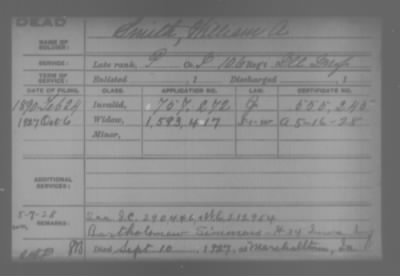 DEAD
NAME OF SOLDIER: Smith, William A.
SERVICE: Late rank, P Co. D 106 Reg't Ill Inf
TERM OF SERVICE: Enlisted , 1 Discharged , 1
DATE OF FILING. CLASS. APPLICATION NO. LAW. CERTIFICATE NO.
1890 Feb 24 Invalid, 757,272 555,245
1927 Oct 6 Widow, 1,593,417 A 5-16-28
Minor,
ADDITIONAL SERVICES:
5-7-28 REMARKS: See I.C. 290446, W.C. 212904
Bartholomew Simmons - H 24 Iowa Inf
Died Sept 10, 1927, at Marshalltown, Ia